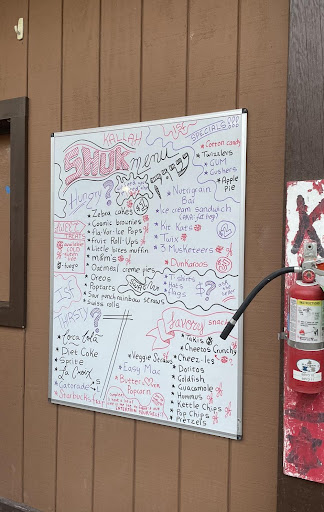 KALLAH
SHUK menu
LIST
SPECIALS
• Cotton candy
• Twizzlers
• GUM
• Gushers
• Apple
pie
Hungry?
• Zebra cakes
• Cosmic brownies
• Fla-Vor-Ice Pops
• Fruit Roll-Ups
• Little bites muffin
• m&m's
• Oatmeal creme pies
• Oreos
• Poptarts
• Sour punch rainbow straws
• Swiss rolls
• Nutrigrain
Bar
• ice cream sandwich
• Kit Kats
• Twix
• 3 Musketeers
• Dunkaroos
TREATS
available
COLD
when
T-shirts
Hats
Flags
THIRSTY?
• Coca Cola
• Diet Coke
• Sprite
• La Croix
• Gatorade
• Starbucks frap
• Veggie Straws
• Easy Mac
• Butter
Popcorn
Savory snacks
• Takis
• Cheetos Crunchy
• Cheez-Its
• Doritos
• Goldfish
• Guacamole
• Hummus
• Kettle Chips
• Pop Chips
• Pretzels